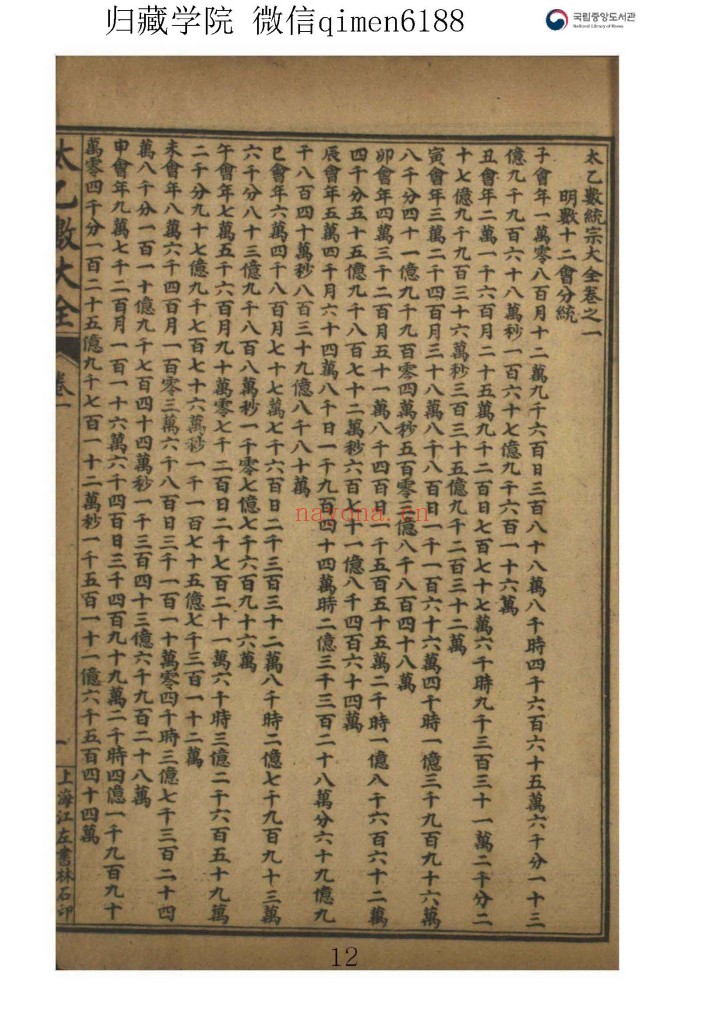 归藏学院 微信qimen6188
국립중앙도서관
National Library of Korea
太乙數統宗大全卷之一
明數十二會分統
子會年一萬零八百月十二萬九千六百日三百八十八萬八千時四千六百六十五萬六千分一十三
億九千九百六十八萬秒一百六十七億九千六百一十六萬
丑會年二萬一千六百月二十五萬九千二百日七百七十七萬六千時九千三百三十一萬二千分二
十七億九千九百三十六萬秒三百三十五億九千二百三十二萬
寅會年三萬二千四百月三十八萬八千八百日一千一百六十六萬四千時一億三千九百九十六萬
八千分四十一億九千九百零四萬秒五百零三億八千八百四十八萬
卯會年四萬三千二百月五十一萬八千四百日一千五百五十五萬二千時一億八千六百六十二萬
四千分五十五億九千八百七十二萬秒六百七十一億八千四百六十四萬
辰會年五萬四千月六十四萬八千日一千九百四十四萬時二億三千三百二十八萬分六十九億九
千八百四十萬秒八百三十九億八千八十萬
巳會年六萬四千八百月七十七萬七千六百日二千三百三十二萬八千時二億七千九百九十三萬
六千分八十三億九千八百八萬秒一千零七億七千六百九十六萬
午會年七萬五千六百月九十萬零七千二百日二千七百二十一萬六千時三億二千六百五十九萬
二千分九十七億九千七百七十六萬秒一千一百七十五億七千三百一十二萬
未會年八萬六千四百月一百零三萬六千八百日三千一百一十萬零四千時三億七千三百二十四
萬八千分一百一十億九千七百四十四萬秒一千三百四十三億六千九百二十八萬
申會年九萬七千二百月一百一十六萬六千四百日三千四百九十九萬二千時四億一千九百九十
萬零四千分一百二十五億九千七百一十二萬秒一千五百一十一億六千五百四十四萬
太乙數大全 卷一 一 上海江左書林石印
nayona.cn
12